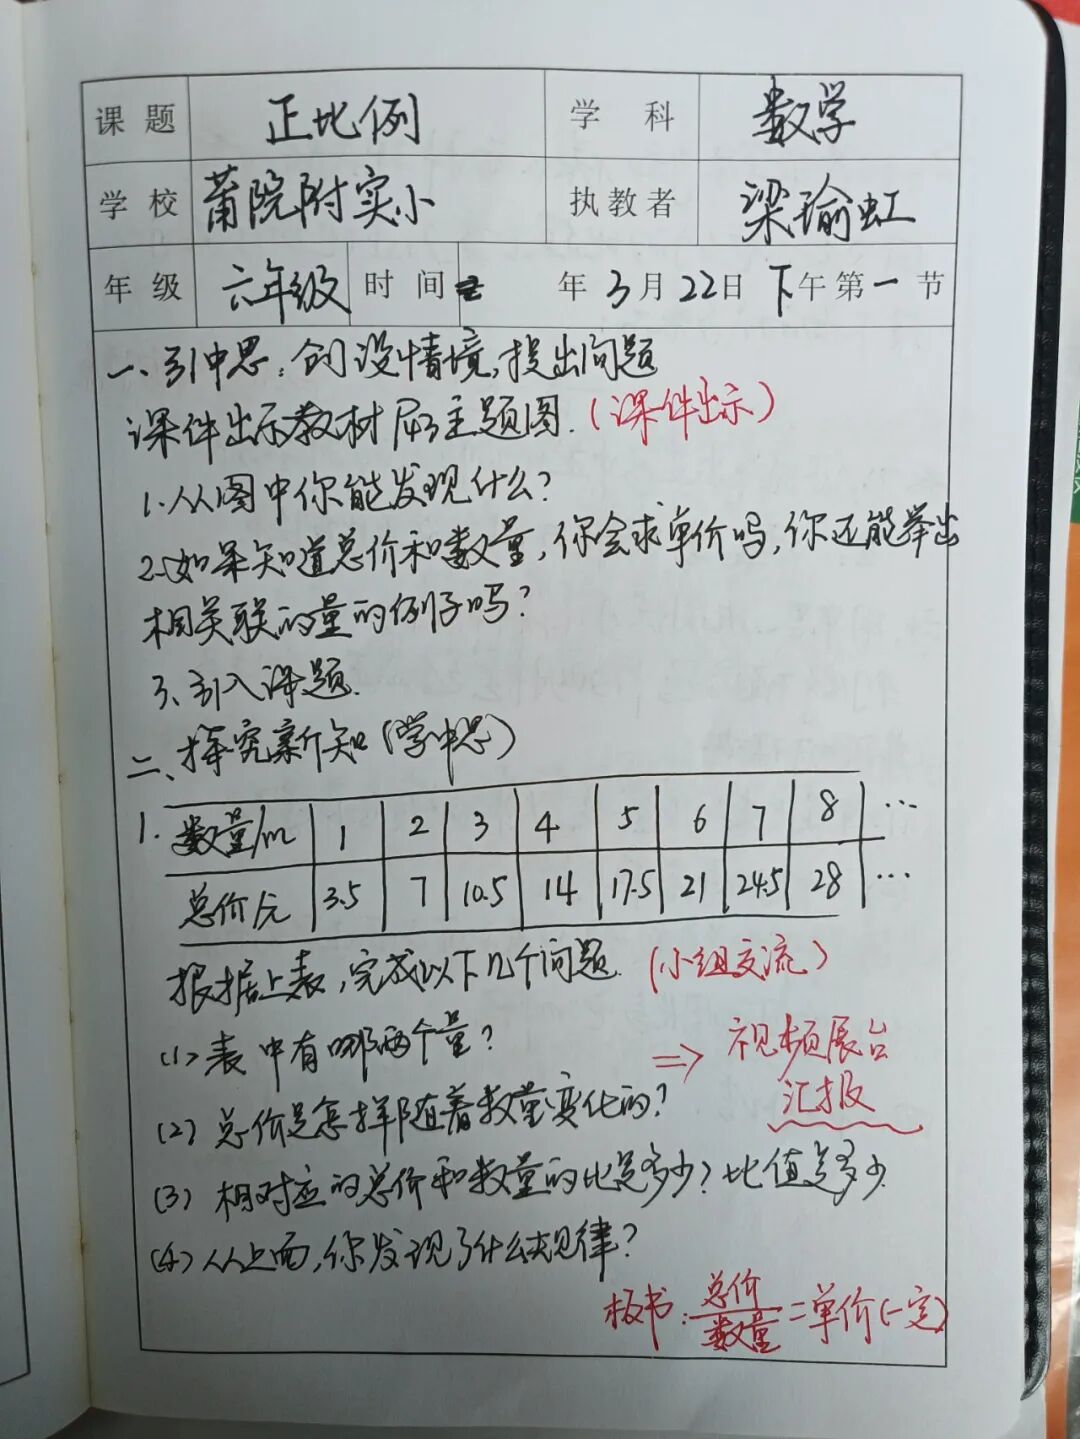 课题 正比例 学科 数学
学校 莆院附实小 执教者 梁瑜虹
年级 六年级 时间 年3月22日 下午第一节
一、引中思：创设情境,提出问题
课件出示教材P43主题图.(课件出示)
1.从图中你能发现什么?
2.如果知道总价和数量,你会求单价吗,你还能举出
相关联的量的例子吗?
3、引入课题.
二、探究新知(学中思)
1. 数量/m 1 2 3 4 5 6 7 8 …
总价/元 3.5 7 10.5 14 17.5 21 24.5 28 …
根据上表,完成以下几个问题.(小组交流)
(1)表中有哪两个量? ⇒ 视频展台
汇报
(2)总价是怎样随着数量变化的?
(3)相对应的总价和数量的比是多少?比值是多少.
(4)从上面,你发现了什么规律?
板书:总价/数量=单价(一定)